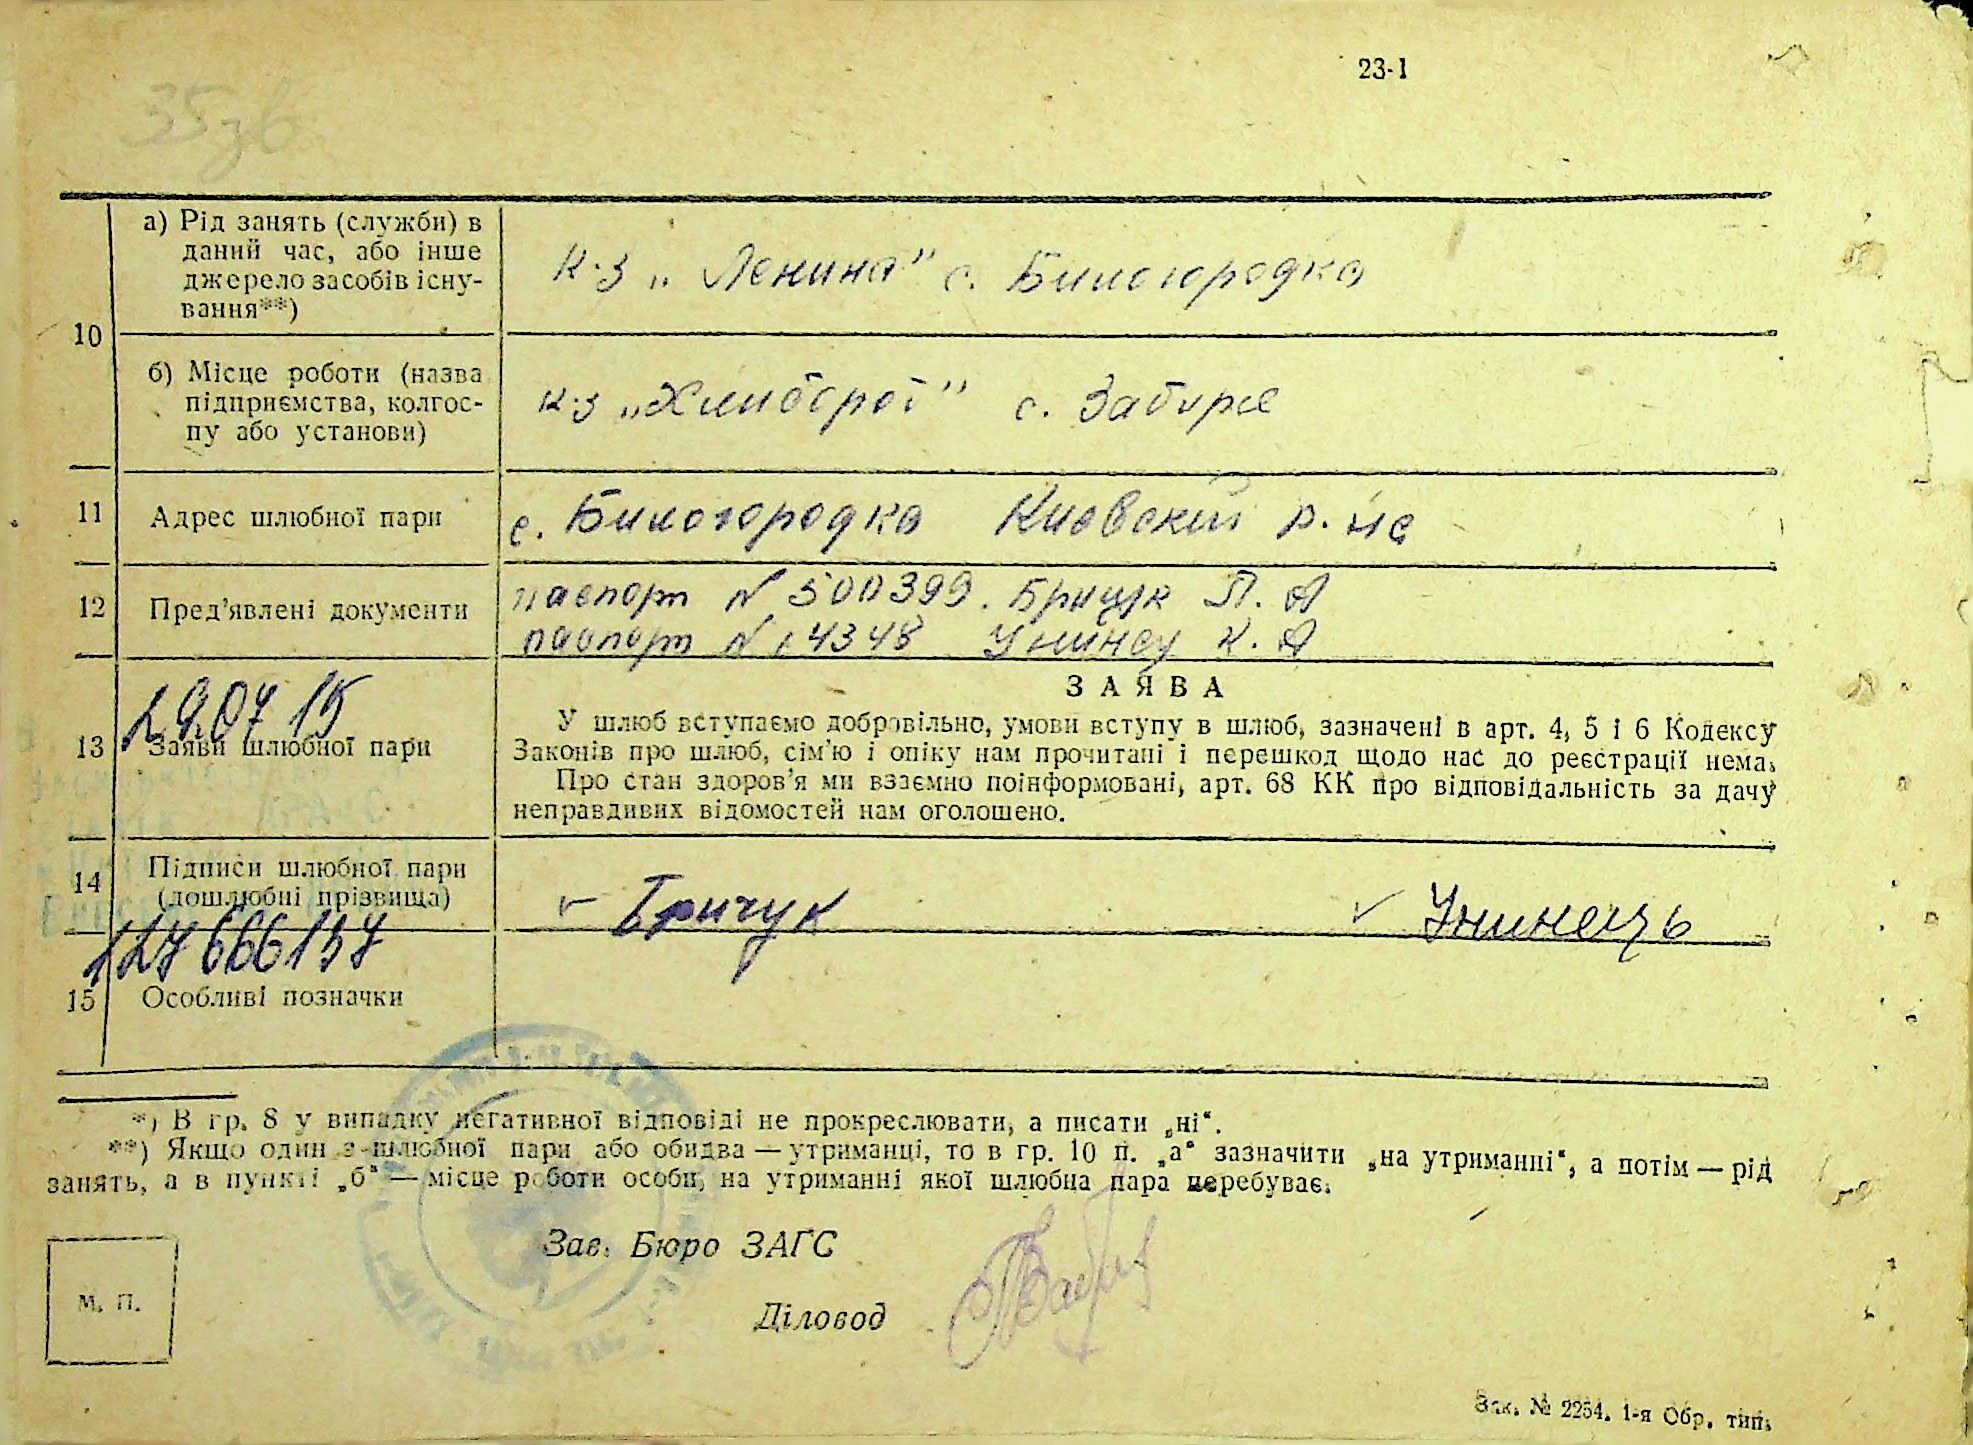 23-1
35зв
а) Рід занять (служби) в
даний час, або інше
джерело засобів існу-
вання**)
к-з „Ленина" с. Билогородка
10
б) Місце роботи (назва
підприємства, колгос-
пу або установи)
к-з „Хлибороб" с. Забирье
11 Адрес шлюбної пари
с. Билогородка Киевский р. на
12 Пред'явлені документи
паспорт № 500399. Бричук П. А
паспорт № 14348 Унинец К. А
29.07 15
13 Заяви шлюбної пари
ЗАЯВА
У шлюб вступаємо добровільно, умови вступу в шлюб, зазначені в арт. 4, 5 і 6 Кодексу
Законів про шлюб, сім'ю і опіку нам прочитані і перешкод щодо нас до реєстрації нема.
Про стан здоров'я ми взаємно поінформовані, арт. 68 КК про відповідальність за дачу
неправдивих відомостей нам оголошено.
14 Підписи шлюбної пари
(дошлюбні прізвища)
Бричук Унинець
127666137
15 Особливі позначки
*) В гр. 8 у випадку негативної відповіді не прокреслювати, а писати „ні“.
**) Якщо один з шлюбної пари або обидва — утриманці, то в гр. 10 п. „а“ зазначити „на утриманні“, а потім — рід
занять, а в пункті „б“ — місце роботи особи, на утриманні якої шлюбна пара перебуває.
Зав. Бюро ЗАГС
М. П.
Діловод
Зак. № 2254. 1-я Обр. тип.